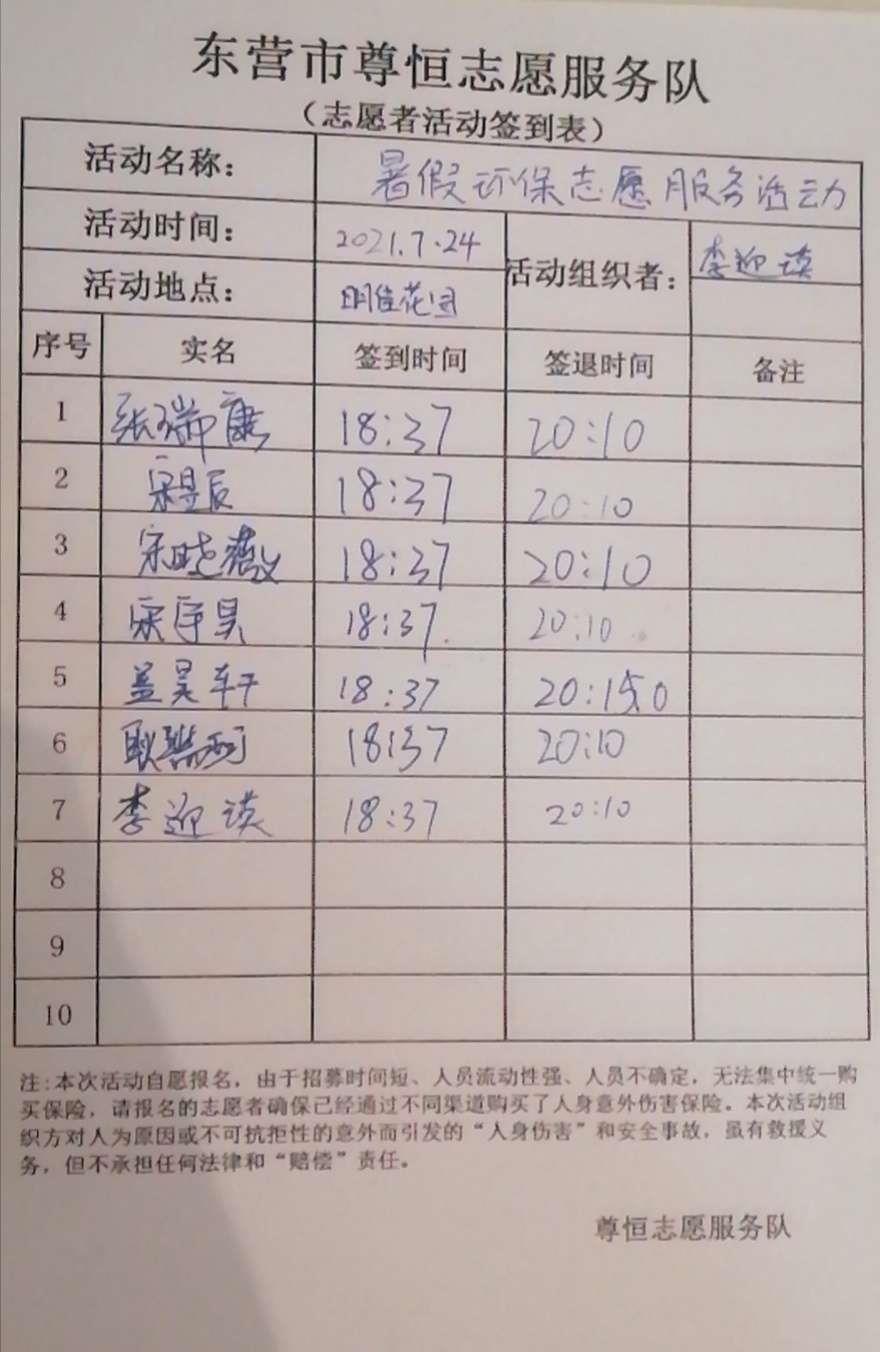 东营市尊恒志愿服务队
（志愿者活动签到表）
活动名称： 暑假环保志愿服务活动
活动时间： 2021.7.24 活动组织者： 李迎谟
活动地点： 明佳花园
序号 实名 签到时间 签退时间 备注
1 张瑞康 18:37 20:10
2 宋昱辰 18:37 20:10
3 宋晓薇 18:37 20:10
4 宋宇昊 18:37 20:10
5 盖昊轩 18:37 20:10
6 18:37 20:10
7 李迎谟 18:37 20:10
8
9
10
注：本次活动自愿报名，由于招募时间短、人员流动性强、人员不确定，无法集中统一购
买保险，请报名的志愿者确保已经通过不同渠道购买了人身意外伤害保险。本次活动组
织方对人为原因或不可抗拒性的意外而引发的“人身伤害”和安全事故，虽有救援义
务，但不承担任何法律和“赔偿”责任。
尊恒志愿服务队